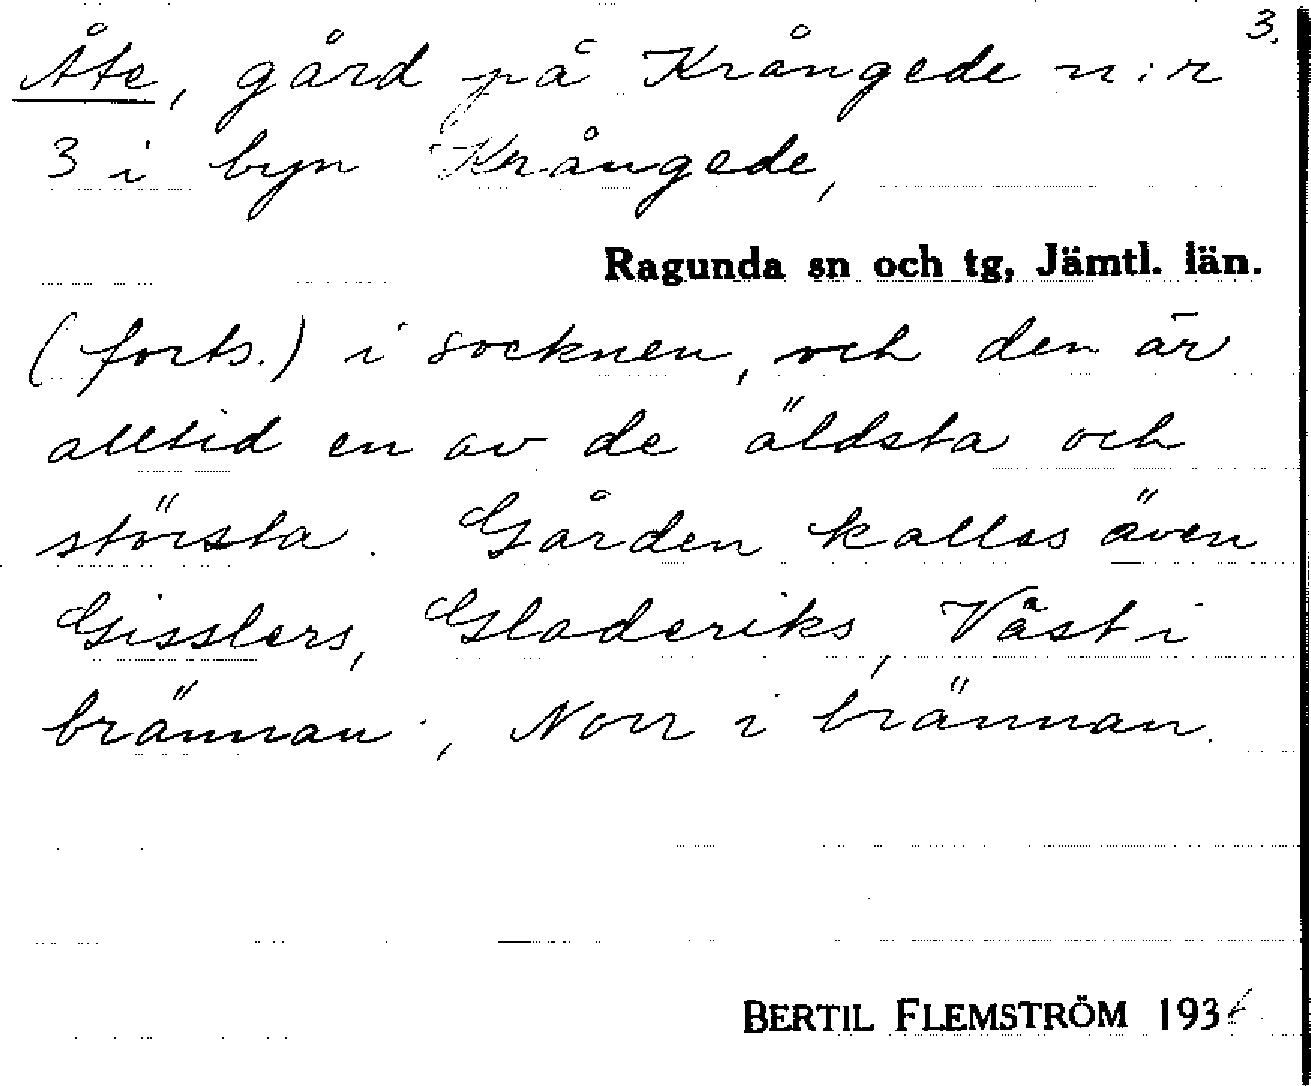 3.
Åte, gård på Krångede n:r
3 i byn Krångede,
Ragunda sn och tg, Jämtl. län.
(forts.) i socknen, och den är
alltid en av de äldsta och
största. Gården kallas även
Gisslers, Gladeriks, Väst i
brännan, Norr i brännan.
BERTIL FLEMSTRÖM 193